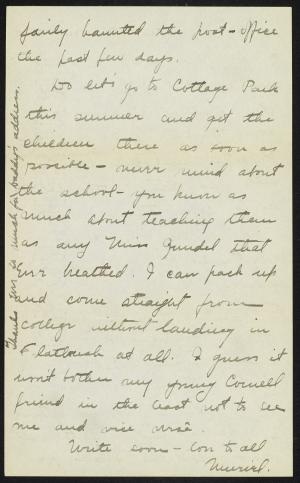 fairly haunted the post-office
the past few days.
Do let's go to Cottage Park
this summer and get the
children there as soon as
possible - never mind about
the school - you know as
much about teaching them
as any Miss Gundel that
ever breathed. I can pack up
and come straight from
college without landing in
Flatbush at all. I guess it
won't bother my young Cornell
friend in the least not to see
me and vice versâ.
Write soon - to all
Muriel.
Thanks ever so much for Daddy's address.